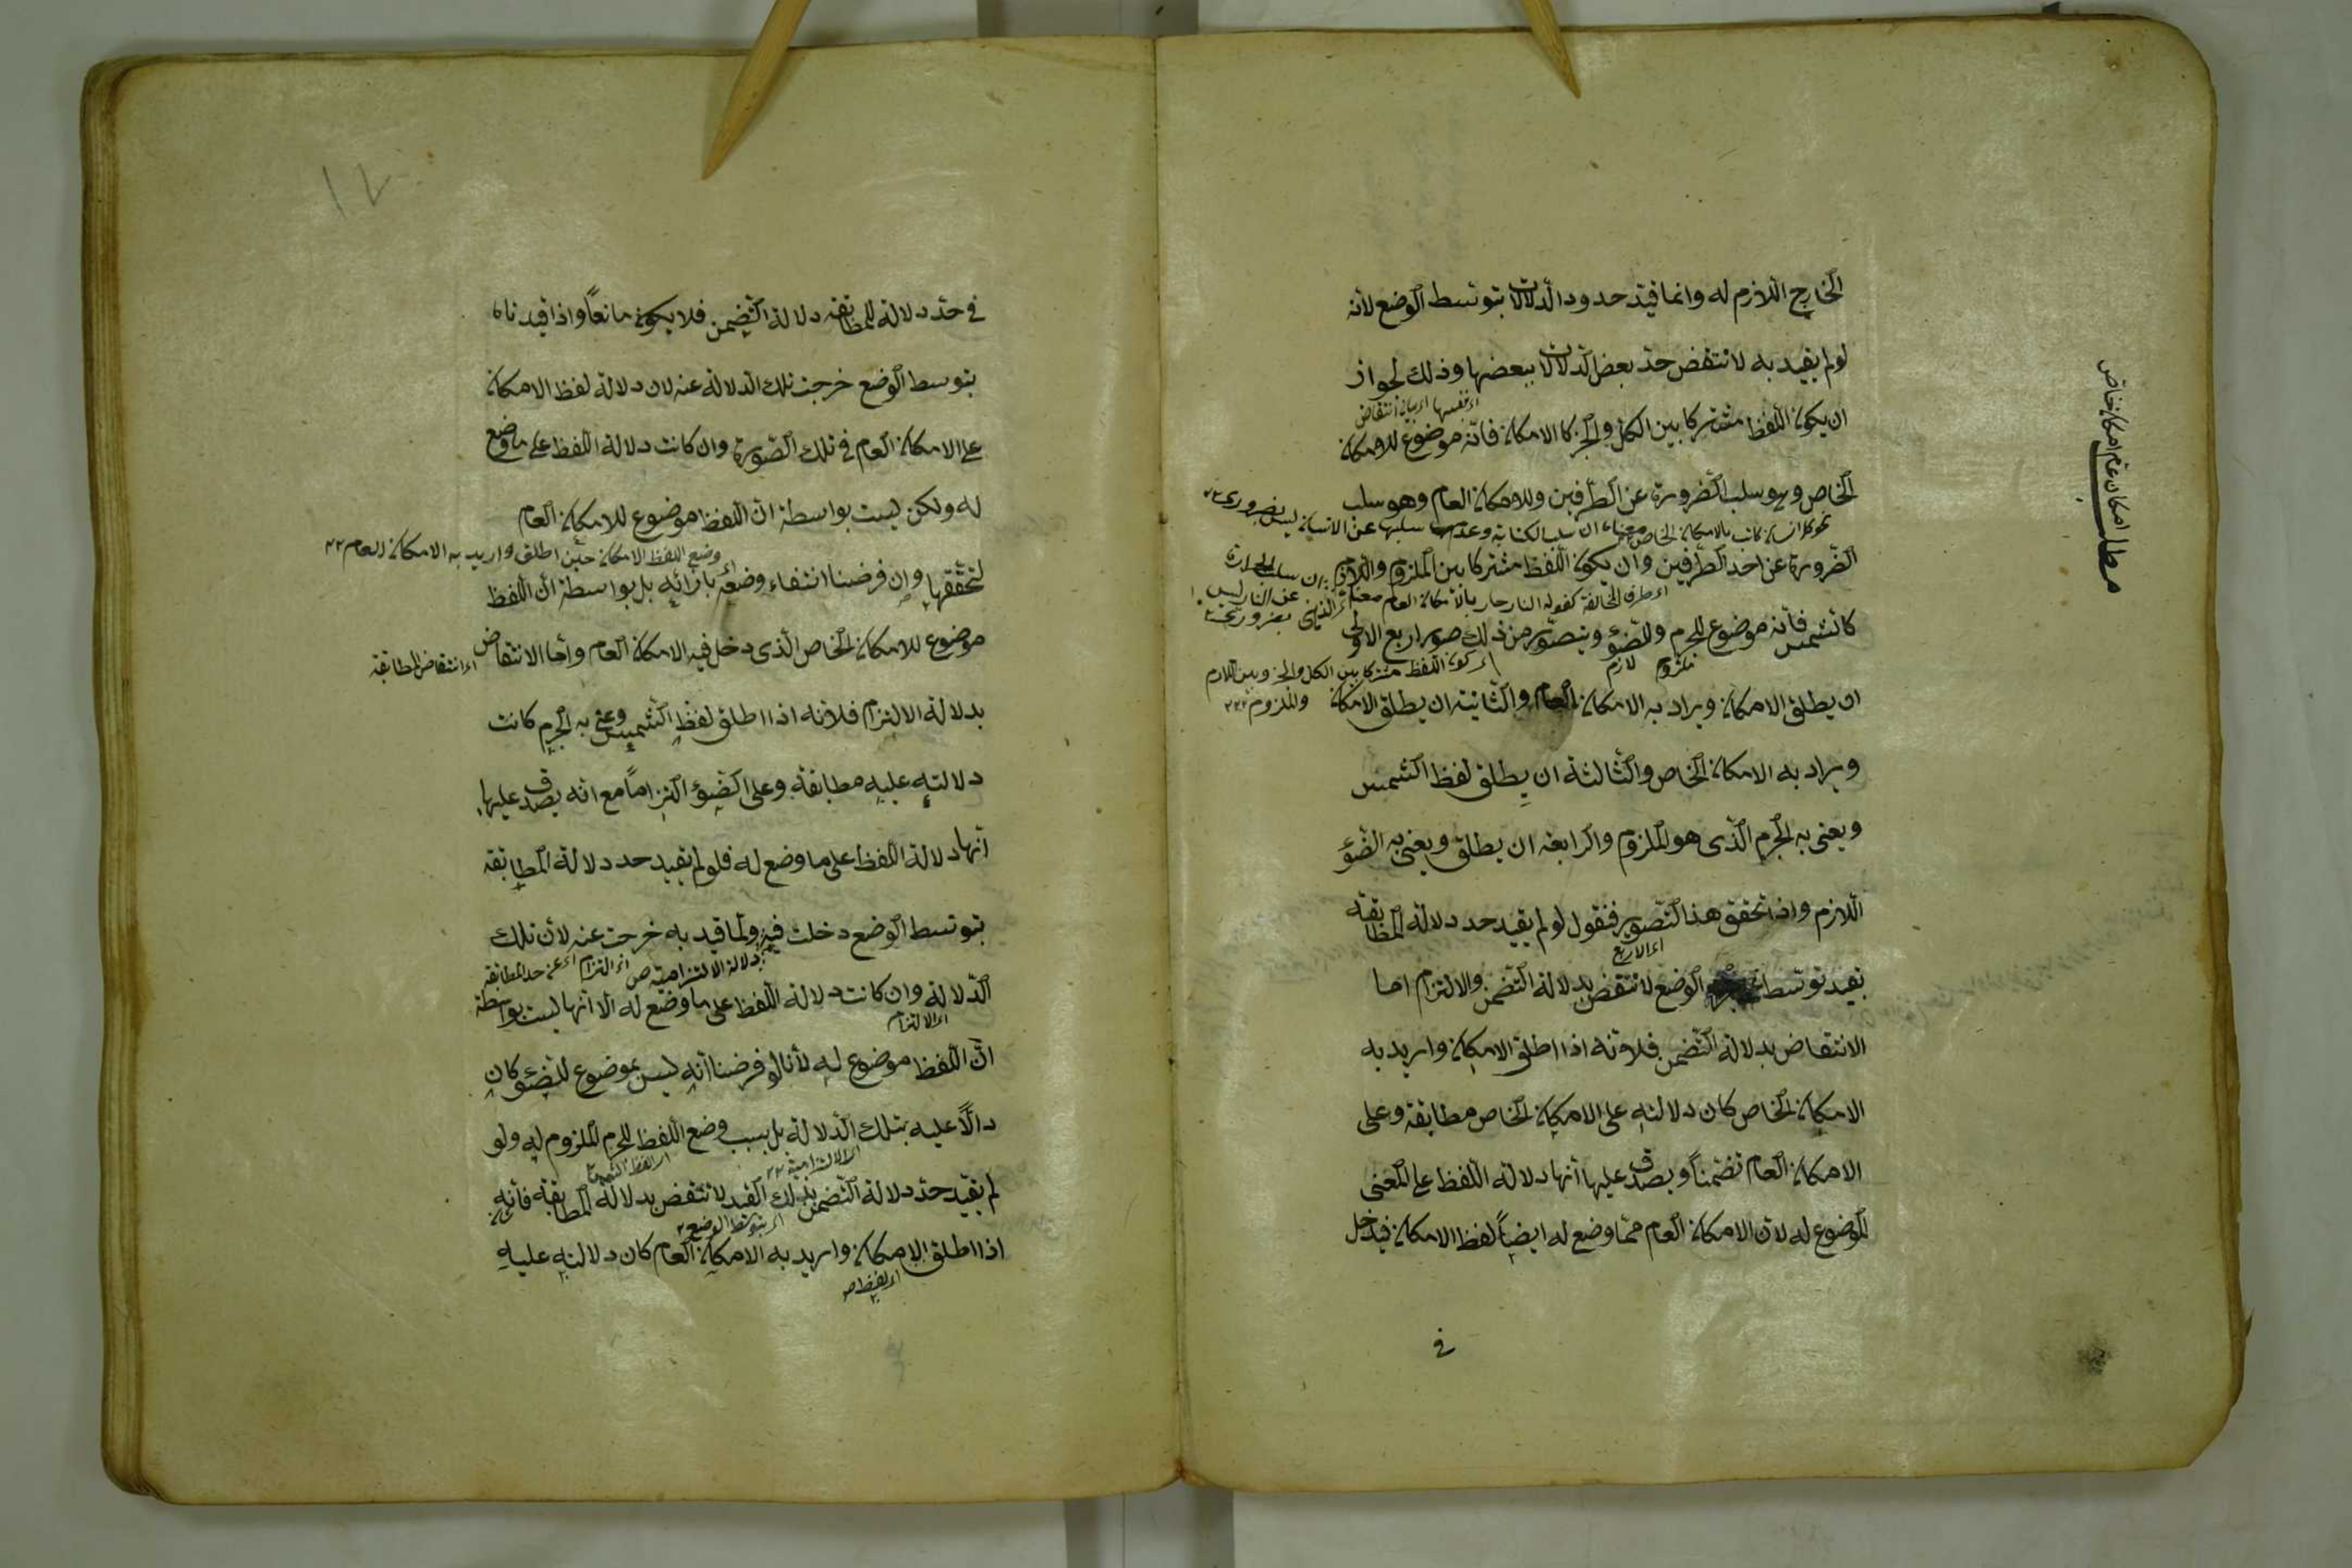 الخارج اللازم له وانما قيد حدود الدلالات بتوسط الوضع لانه
لو لم يقيد به لانتقض حد بعض الدلالات ببعضها وذلك لجواز
ان يكون اللفظ مشتركا بين الكل والجزء كالامكان فانه موضوع للامكان
الخاص وهو سلب الضرورة عن الطرفين وللامكان العام وهو سلب
الضرورة عن احد الطرفين وان يكون اللفظ مشتركا بين الملزوم واللازم
كالشمس فانه موضوع للجرم وللضوء ويتصور من ذلك صور اربع الاولى
ملزوم لازم
ان يطلق الامكان ويراد به الامكان العام والثانية ان يطلق الامكان
ويراد به الامكان الخاص والثالثة ان يطلق لفظ الشمس
ويعنى به الجرم الذى هو الملزوم والرابعة ان يطلق ويعنى به الضوء
اللازم واذا تحقق هذا التصوير فنقول لو لم يقيد حد دلالة المطابقة
بقيد توسط الوضع لانتقض بدلالة التضمن والالتزام اما
الانتقاض بدلالة التضمن فلانه اذا اطلق الامكان واريد به
الامكان الخاص كان دلالته على الامكان الخاص مطابقة وعلى
الامكان العام تضمناً ويصدق عليها انها دلالة اللفظ على المعنى
الموضوع له لان الامكان العام مما وضع له ايضاً لفظ الامكان فيدخل
فى
مطلب امكان عام امكان خاص
١٢
فى حد دلالة المطابقة دلالة التضمن فلا يكون مانعاً واذا قيدناه
بتوسط الوضع خرجت تلك الدلالة عنه لان دلالة لفظ الامكان
على الامكان العام فى تلك الصورة وان كانت دلالة اللفظ على ما وضع
له ولكن ليست بواسطة ان اللفظ موضوع للامكان العام
وضع اللفظ الامكان حين اطلق واريد به الامكان العام
لتحققها وان فرضنا انتفاء وضعه بازائه بل بواسطة ان اللفظ
موضوع للامكان الخاص الذى دخل فيه الامكان العام واما الانتقاض
اى انتقاض المطابقة
بدلالة الالتزام فلانه اذا اطلق لفظ الشمس وعنى به الجرم كانت
دلالته عليه مطابقة وعلى الضوء التزاماً مع انه يصدق عليها
انها دلالة اللفظ على ما وضع له فلو لم تقيد حد دلالة المطابقة
بتوسط الوضع دخلت فيه ولما قيد به خرجت عنه لان تلك
الدلالة وان كانت دلالة اللفظ على ما وضع له الا انها ليست بواسطة
اى الالتزام
ان اللفظ موضوع له لانا لو فرضنا انه ليس بموضوع للضوء كان
دالاً عليه بتلك الدلالة بل بسبب وضع اللفظ للجرم الملزوم له ولو
لم يقيد حد دلالة التضمن بذلك القيد لانتقض بدلالة المطابقة فانه
اى بتوسط الوضع
اذا اطلق الامكان واريد به الامكان العام كان دلالته عليه